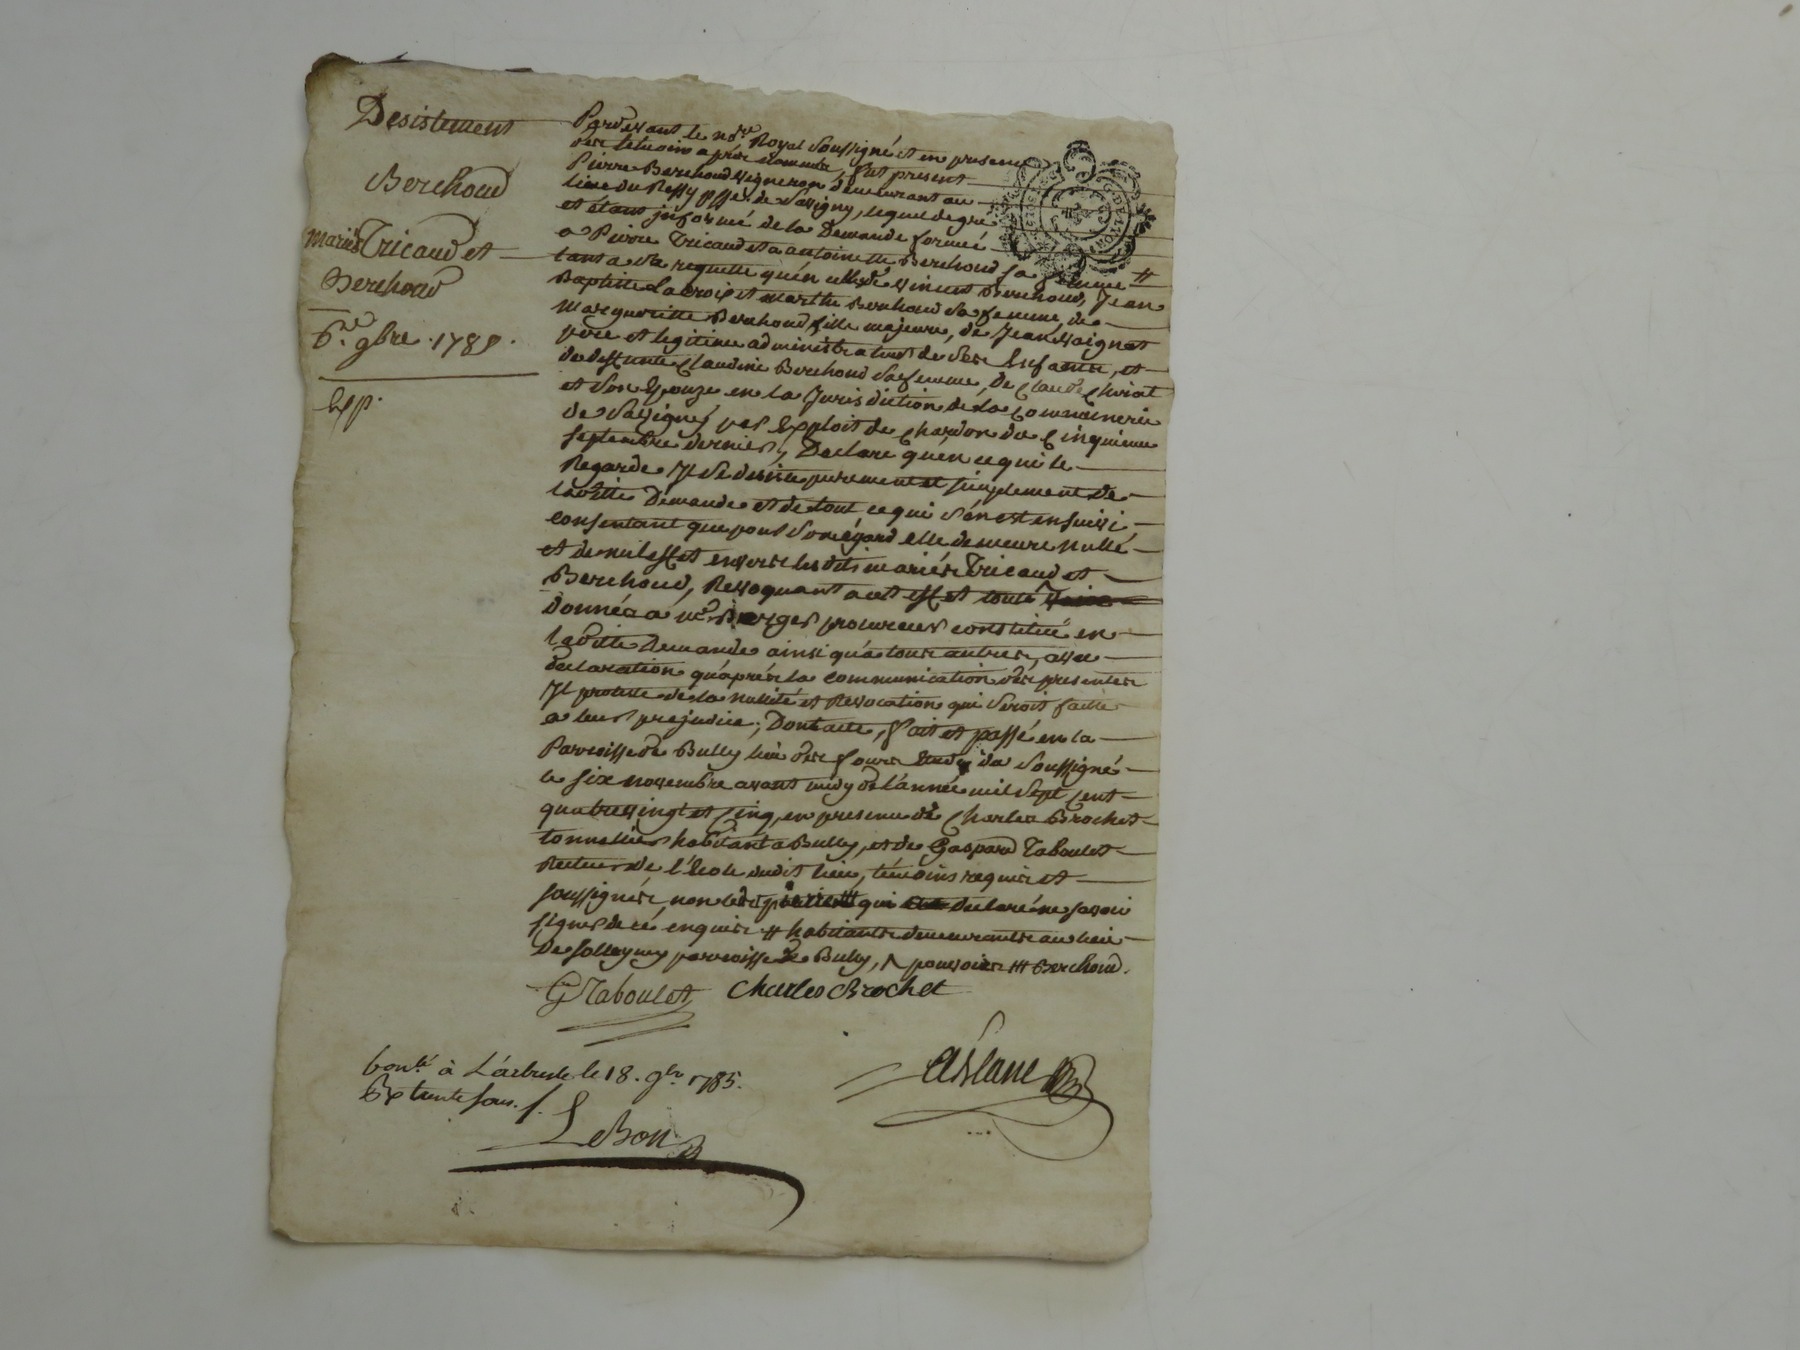 Desistement
Berchoud
mariés Tricaud et
Berchoud
6.re 9bre 1785.
Exp.
Pardevant le no.re Royal soussigné et en presence
des témoins après nommés, fut present
Pierre Berchoud vigneron demeurant au
lieu du Ressy psse. de Savigny, lequel de gré
et étant informé de la Demande formée
a Pierre Tricaud et a antoinette Berchoud sa femme #
tant a sa requette qu'en celle de vincent Berchoud, Jean
Baptiste Lacroix et marthe Berchoud sa femme, de
marguerite Berchoud fille majeure, de Jean voignet
pere et legitime administrateur de ses Enfants, et
de deffunte Claudine Berchoud sa femme, de Claude
et son Epouze en la Jurisdiction de la
de Savigny par Exploit de Chardon du Cinquieme
septembre dernier, Declare qu'en ce qui le
Regarde Il se desiste purement et simplement de
ladite Demande et de tout ce qui s'en est ensuivi
consentant que pour son égard elle demeure nulle
et de nul effet envers lesdits mariés Tricaud et
Berchoud, Revoquant a cet effet touts
donnés a me. procureur constitué en
ladite demande ainsi qu'a tous autres, avec
declaration qu'aprés la communication des presentes
Il proteste de la nullité et Revocation qui seroit faitte
a leur prejudice; Dont acte, fait et passé en la
Parroisse de Bully lieu des fours du soussigné
le six novembre avant midy de l'année mil sept cent
quatrevingt et cinq, en presence de Charles Brochet
tonnelier habitant a Bully, et de Gaspard Taboulet
Recteur de l'école dudit lieu, témoins requis et
soussignés, non qui declaré ne savoir
signer de ce enquis # habitants demeurants au lieu
De Solleymy parroisse de Bully, ^ pouvoirs ### Berchoud.
G Taboulet Charles Brochet
lé à L'arbresle le 18. 9bre 1785.
trente sous.
LeBon